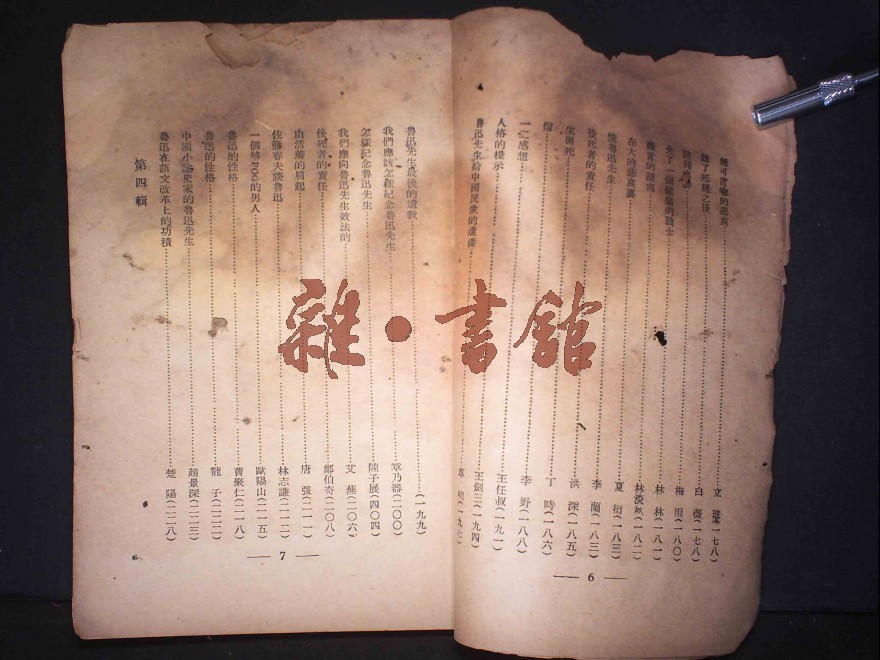 的悲哀……立波（一七八）
聽了死耗之後……白薇（一七八）
……梅雨（一八〇）
失了一個的戰士……林林（一八一）
……林淡秋（一八二）
在大的悲哀裏……夏衍（一八三）
懷魯迅先生……李蘭（一八三）
後死者的責任……洪深（一八五）
生與死……丁時（一八六）
悼……李野（一八八）
一二感想……王任叔（一九一）
人格的提示……王劍三（一九四）
魯迅先生給中國民衆的遺產……（一九七）
— 6 —
魯迅先生最後的遺教……（一九九）
我們應該怎樣記念魯迅先生……章乃器（二〇〇）
怎樣記念魯迅先生……陳子展（四〇四）
我們應向魯迅先生效法的……艾蕪（二〇六）
後死者的責任……鄭伯奇（二〇八）
由活落的肩起……唐弢（二一一）
佐藤春夫談魯迅……林志謙（二一二）
一個够FOG的男人……歐陽山（二一五）
魯迅的性格……曹聚仁（二一八）
魯迅的性格……龍子（二二二）
中國小說史家的魯迅先生……趙景深（二二三）
魯迅在語文改革上的功積……楚陽（二二八）
第四輯
— 7 —
雜•書館